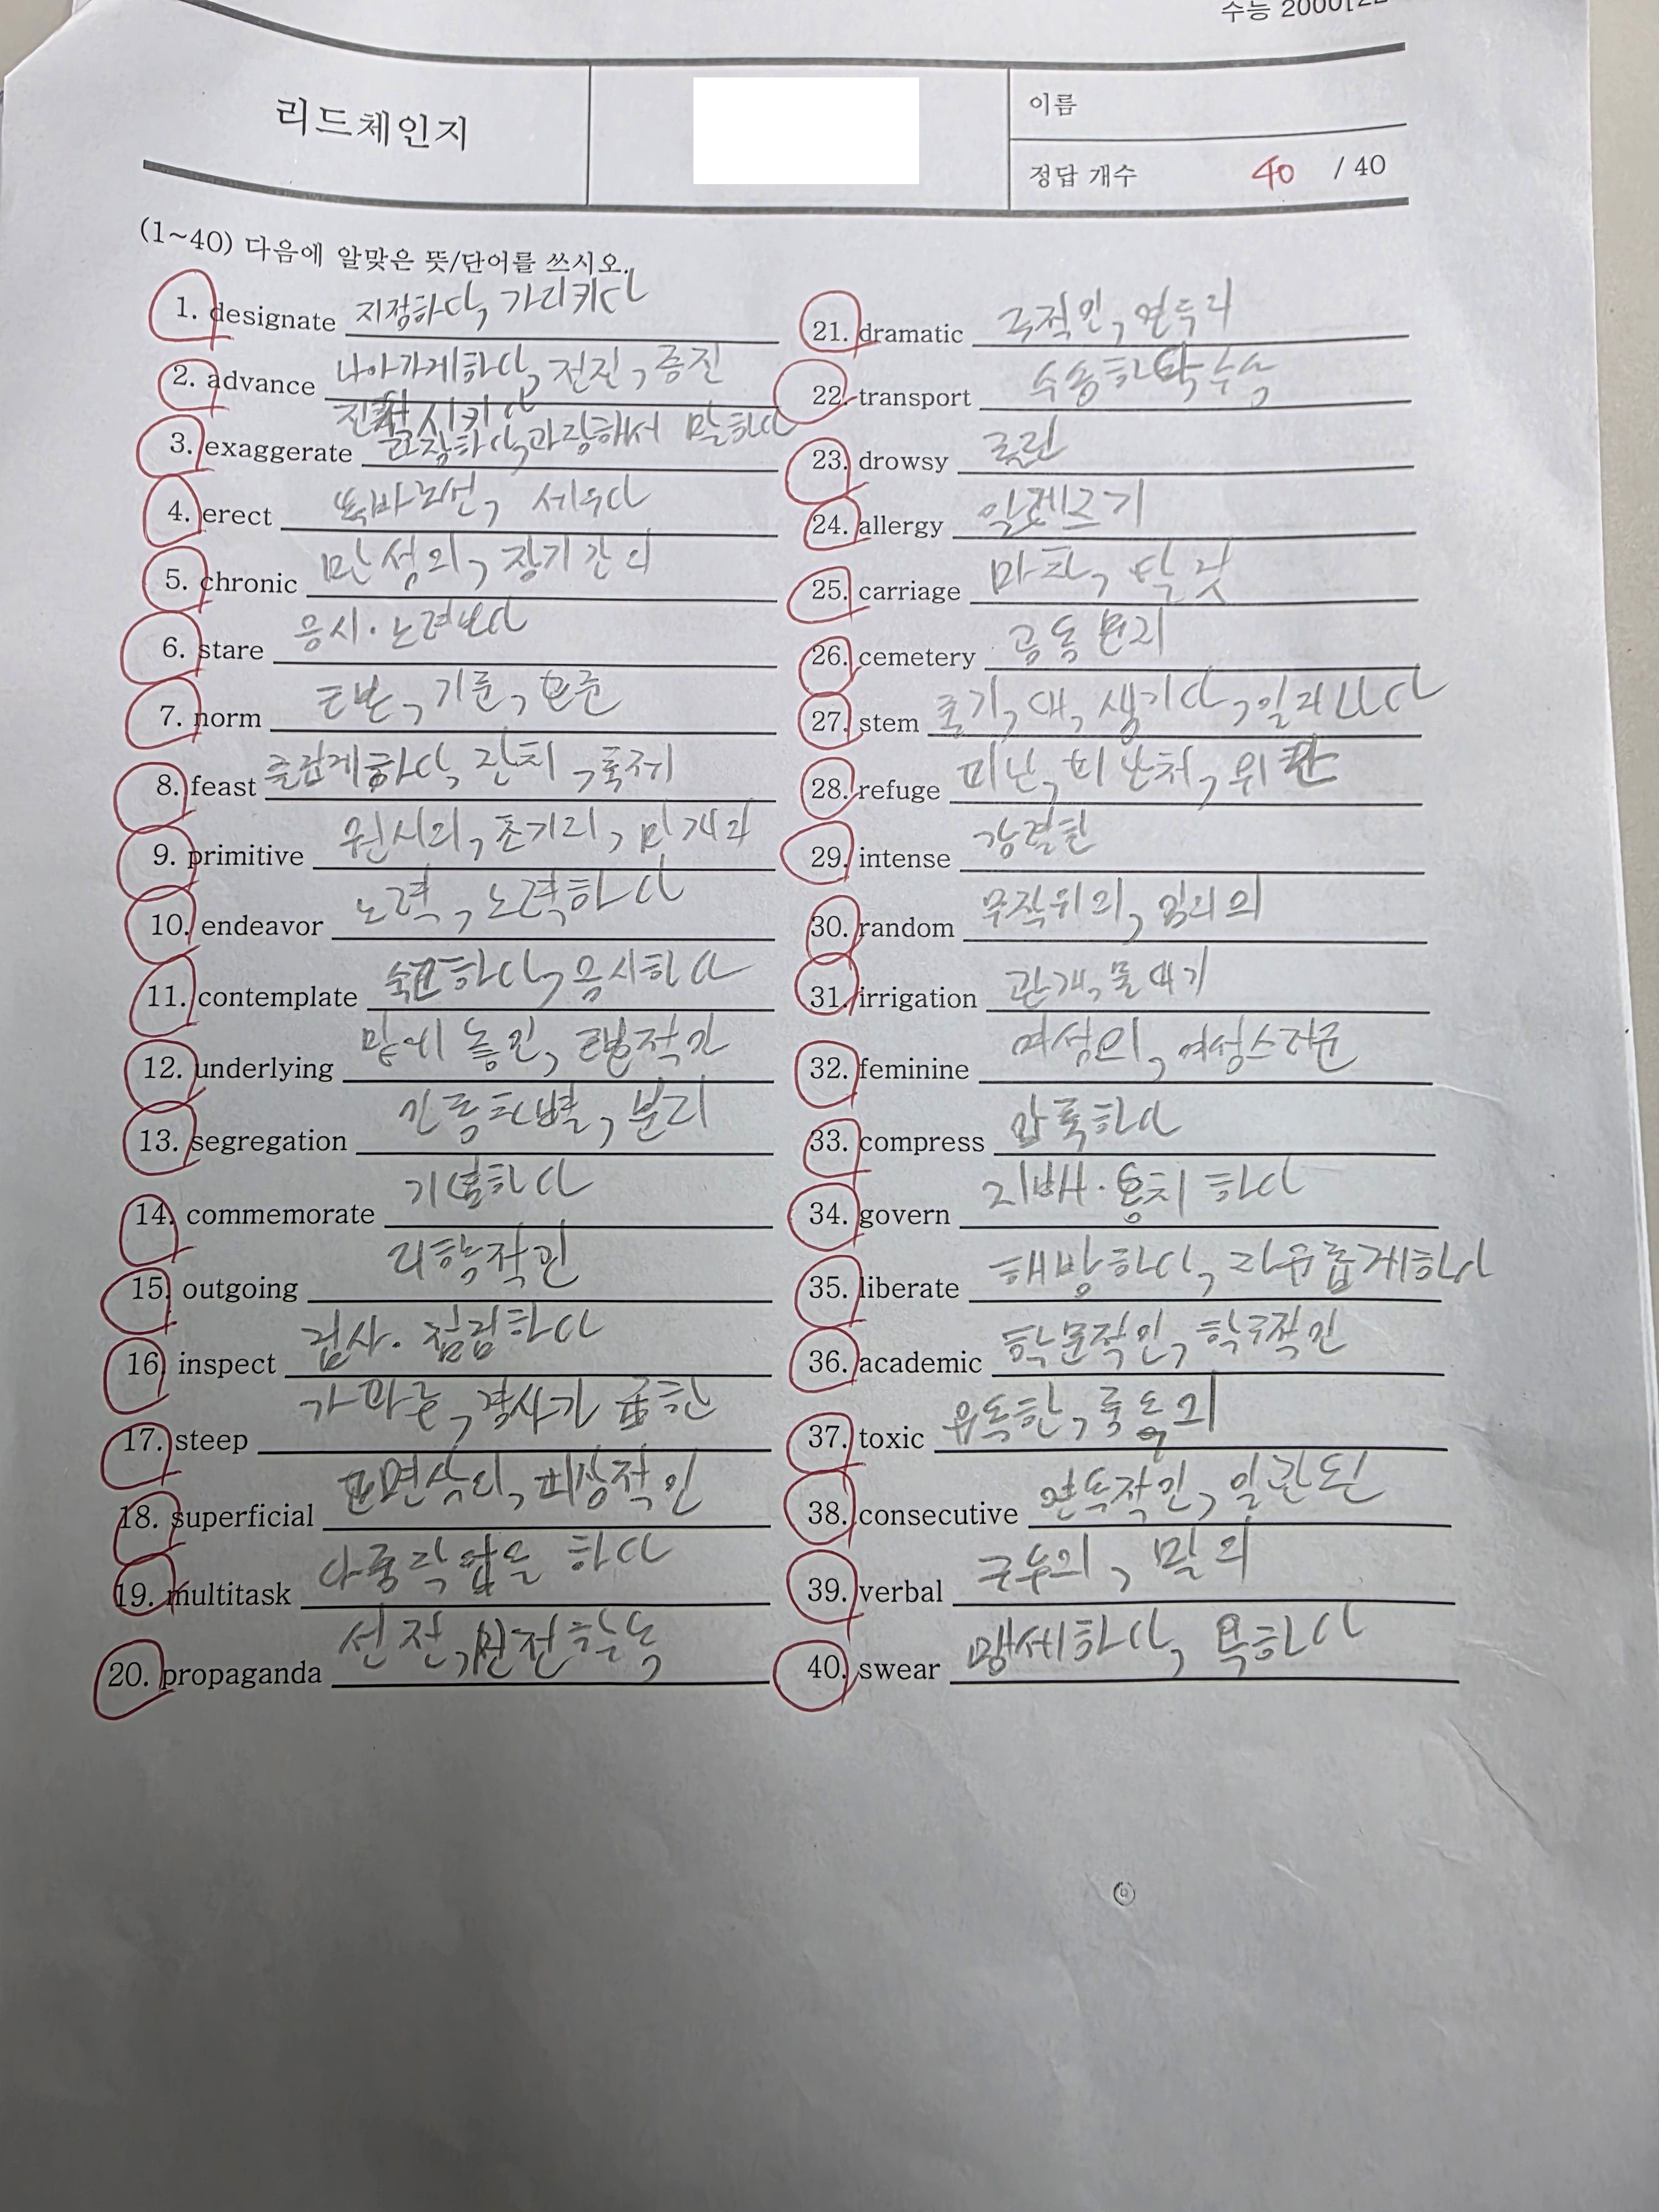 수능 2000
리드체인지
이름
정답 개수 40 / 40
(1~40) 다음에 알맞은 뜻/단어를 쓰시오.
1. designate 지정하다, 가리키다
2. advance 나아가게하다, 전진, 증진
진척시키다
3. exaggerate 과장하다, 과장해서 말하다
4. erect 똑바로선, 세우다
5. chronic 만성의, 장기간의
6. stare 응시·노려보다
7. norm 규범, 기준, 표준
8. feast 즐겁게하다, 잔치, 축제
9. primitive 원시의, 초기의, 미개의
10. endeavor 노력, 노력하다
11. contemplate 숙고하다, 응시하다
12. underlying 밑에 놓인, 근본적인
13. segregation 인종차별, 분리
14. commemorate 기념하다
15. outgoing 외향적인
16. inspect 검사·점검하다
17. steep 가파른, 경사가 급한
18. superficial 표면상의, 피상적인
19. multitask 다중작업을 하다
20. propaganda 선전, 선전활동
21. dramatic 극적인, 연극의
22. transport 수송하다, 수송
23. drowsy 졸린
24. allergy 알레르기
25. carriage 마차, 탈것
26. cemetery 공동묘지
27. stem 줄기, 대, 생기다, 일어나다
28. refuge 피난, 피난처, 위안
29. intense 강렬한
30. random 무작위의, 임의의
31. irrigation 관개, 물대기
32. feminine 여성의, 여성스러운
33. compress 압축하다
34. govern 지배·통치 하다
35. liberate 해방하다, 자유롭게하다
36. academic 학문적인, 학구적인
37. toxic 유독한, 중독의
38. consecutive 연속적인, 일관된
39. verbal 구두의, 말의
40. swear 맹세하다, 욕하다